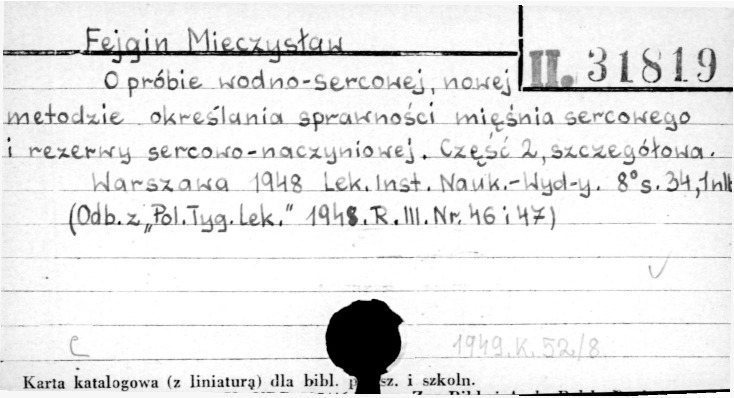 Fejgin Mieczysław
II. 31819
O próbie wodno-sercowej, nowej
metodzie określania sprawności mięśnia sercowego
i rezerwy sercowo-naczyniowej. Część 2, szczegółowa.
Warszawa 1948 Lek. Inst. Nauk.-Wyd-y. 8° s. 34, 1 nlb
(Odb. z „Pol. Tyg. Lek." 1948. R. III. Nr. 46 i 47)
1949. K. 52/8
Karta katalogowa (z liniaturą) dla bibl. sz. i szkoln.